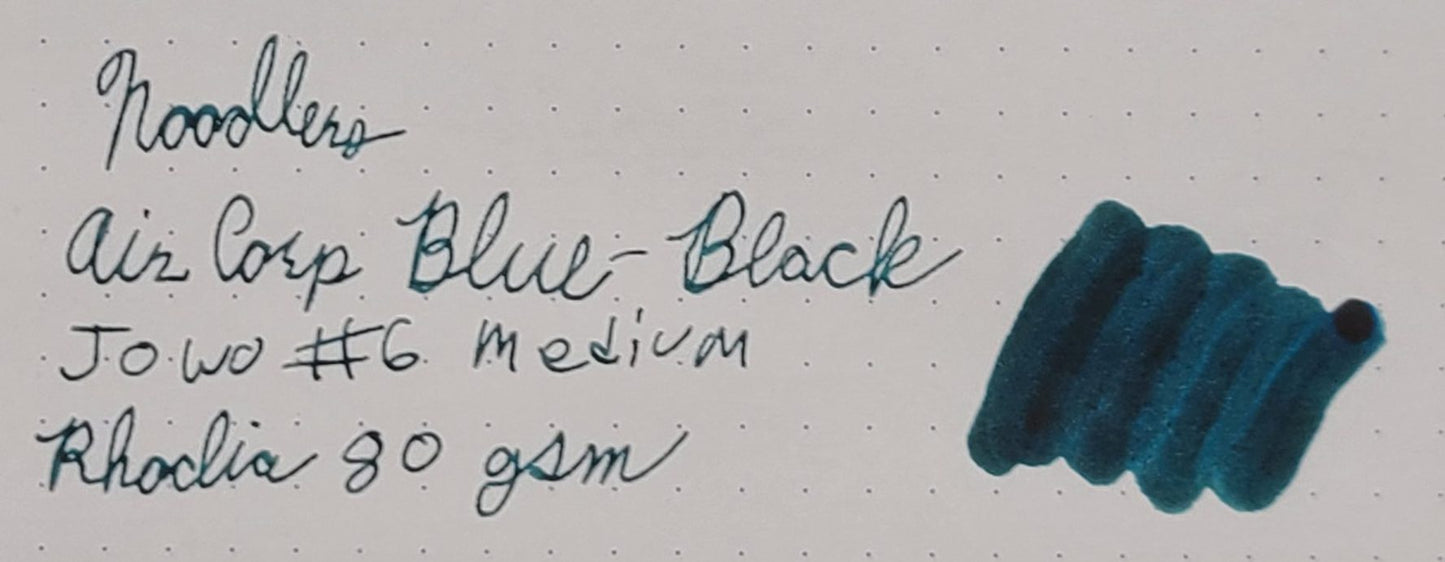 Noodlers
Air Corp Blue-Black
Jowo #6 medium
Rhodia 80 gsm